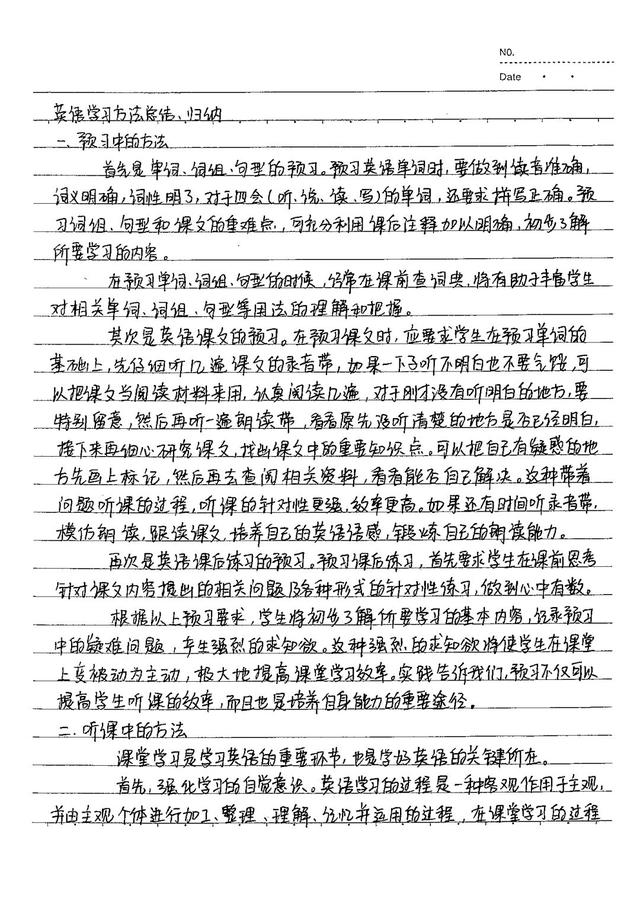 NO.
Date
英语学习方法总结、归纳
一、预习中的方法
首先是单词、词组、句型的预习。预习英语单词时，要做到读音准确，
词义明确，词性明了，对于四会（听、说、读、写）的单词，还要求拼写正确。预
习词组、句型和课文的重难点，可充分利用课后注释加以明确，初步了解
所要学习的内容。
在预习单词、词组、句型的时候，经常在课前查词典，将有助于丰富学生
对相关单词、词组、句型等用法的理解和把握。
其次是英语课文的预习。在预习课文时，应要求学生在预习单词的
基础上，先仔细听几遍课文的录音带，如果一下子听不明白也不要气馁，可
以把课文当阅读材料来用，认真阅读几遍，对于刚才没有听明白的地方，要
特别留意，然后再听一遍朗读带，看看原先没听清楚的地方是否已经明白，
接下来再细心研究课文，找出课文中的重要知识点。可以把自己有疑惑的地
方先画上标记，然后再去查阅相关资料，看看能否自己解决。这种带着
问题听课的过程，听课的针对性更强，效率更高。如果还有时间听录音带，
模仿朗读，跟读课文，培养自己的英语语感，锻炼自己的朗读能力。
再次是英语课后练习的预习。预习课后练习，首先要求学生在课前思考
针对课文内容提出的相关问题及各种形式的针对性练习，做到心中有数。
根据以上预习要求，学生将初步了解所要学习的基本内容，记录预习
中的疑难问题，产生强烈的求知欲。这种强烈的求知欲将使学生在课堂
上变被动为主动，极大地提高课堂学习效率。实践告诉我们，预习不仅可以
提高学生听课的效率，而且也是培养自身能力的重要途径。
二、听课中的方法
课堂学习是学习英语的重要环节，也是学好英语的关键所在。
首先，强化学习的自觉意识。英语学习的过程是一种客观作用于主观，
并由主观个体进行加工、整理、理解、记忆并运用的过程，在课堂学习的过程